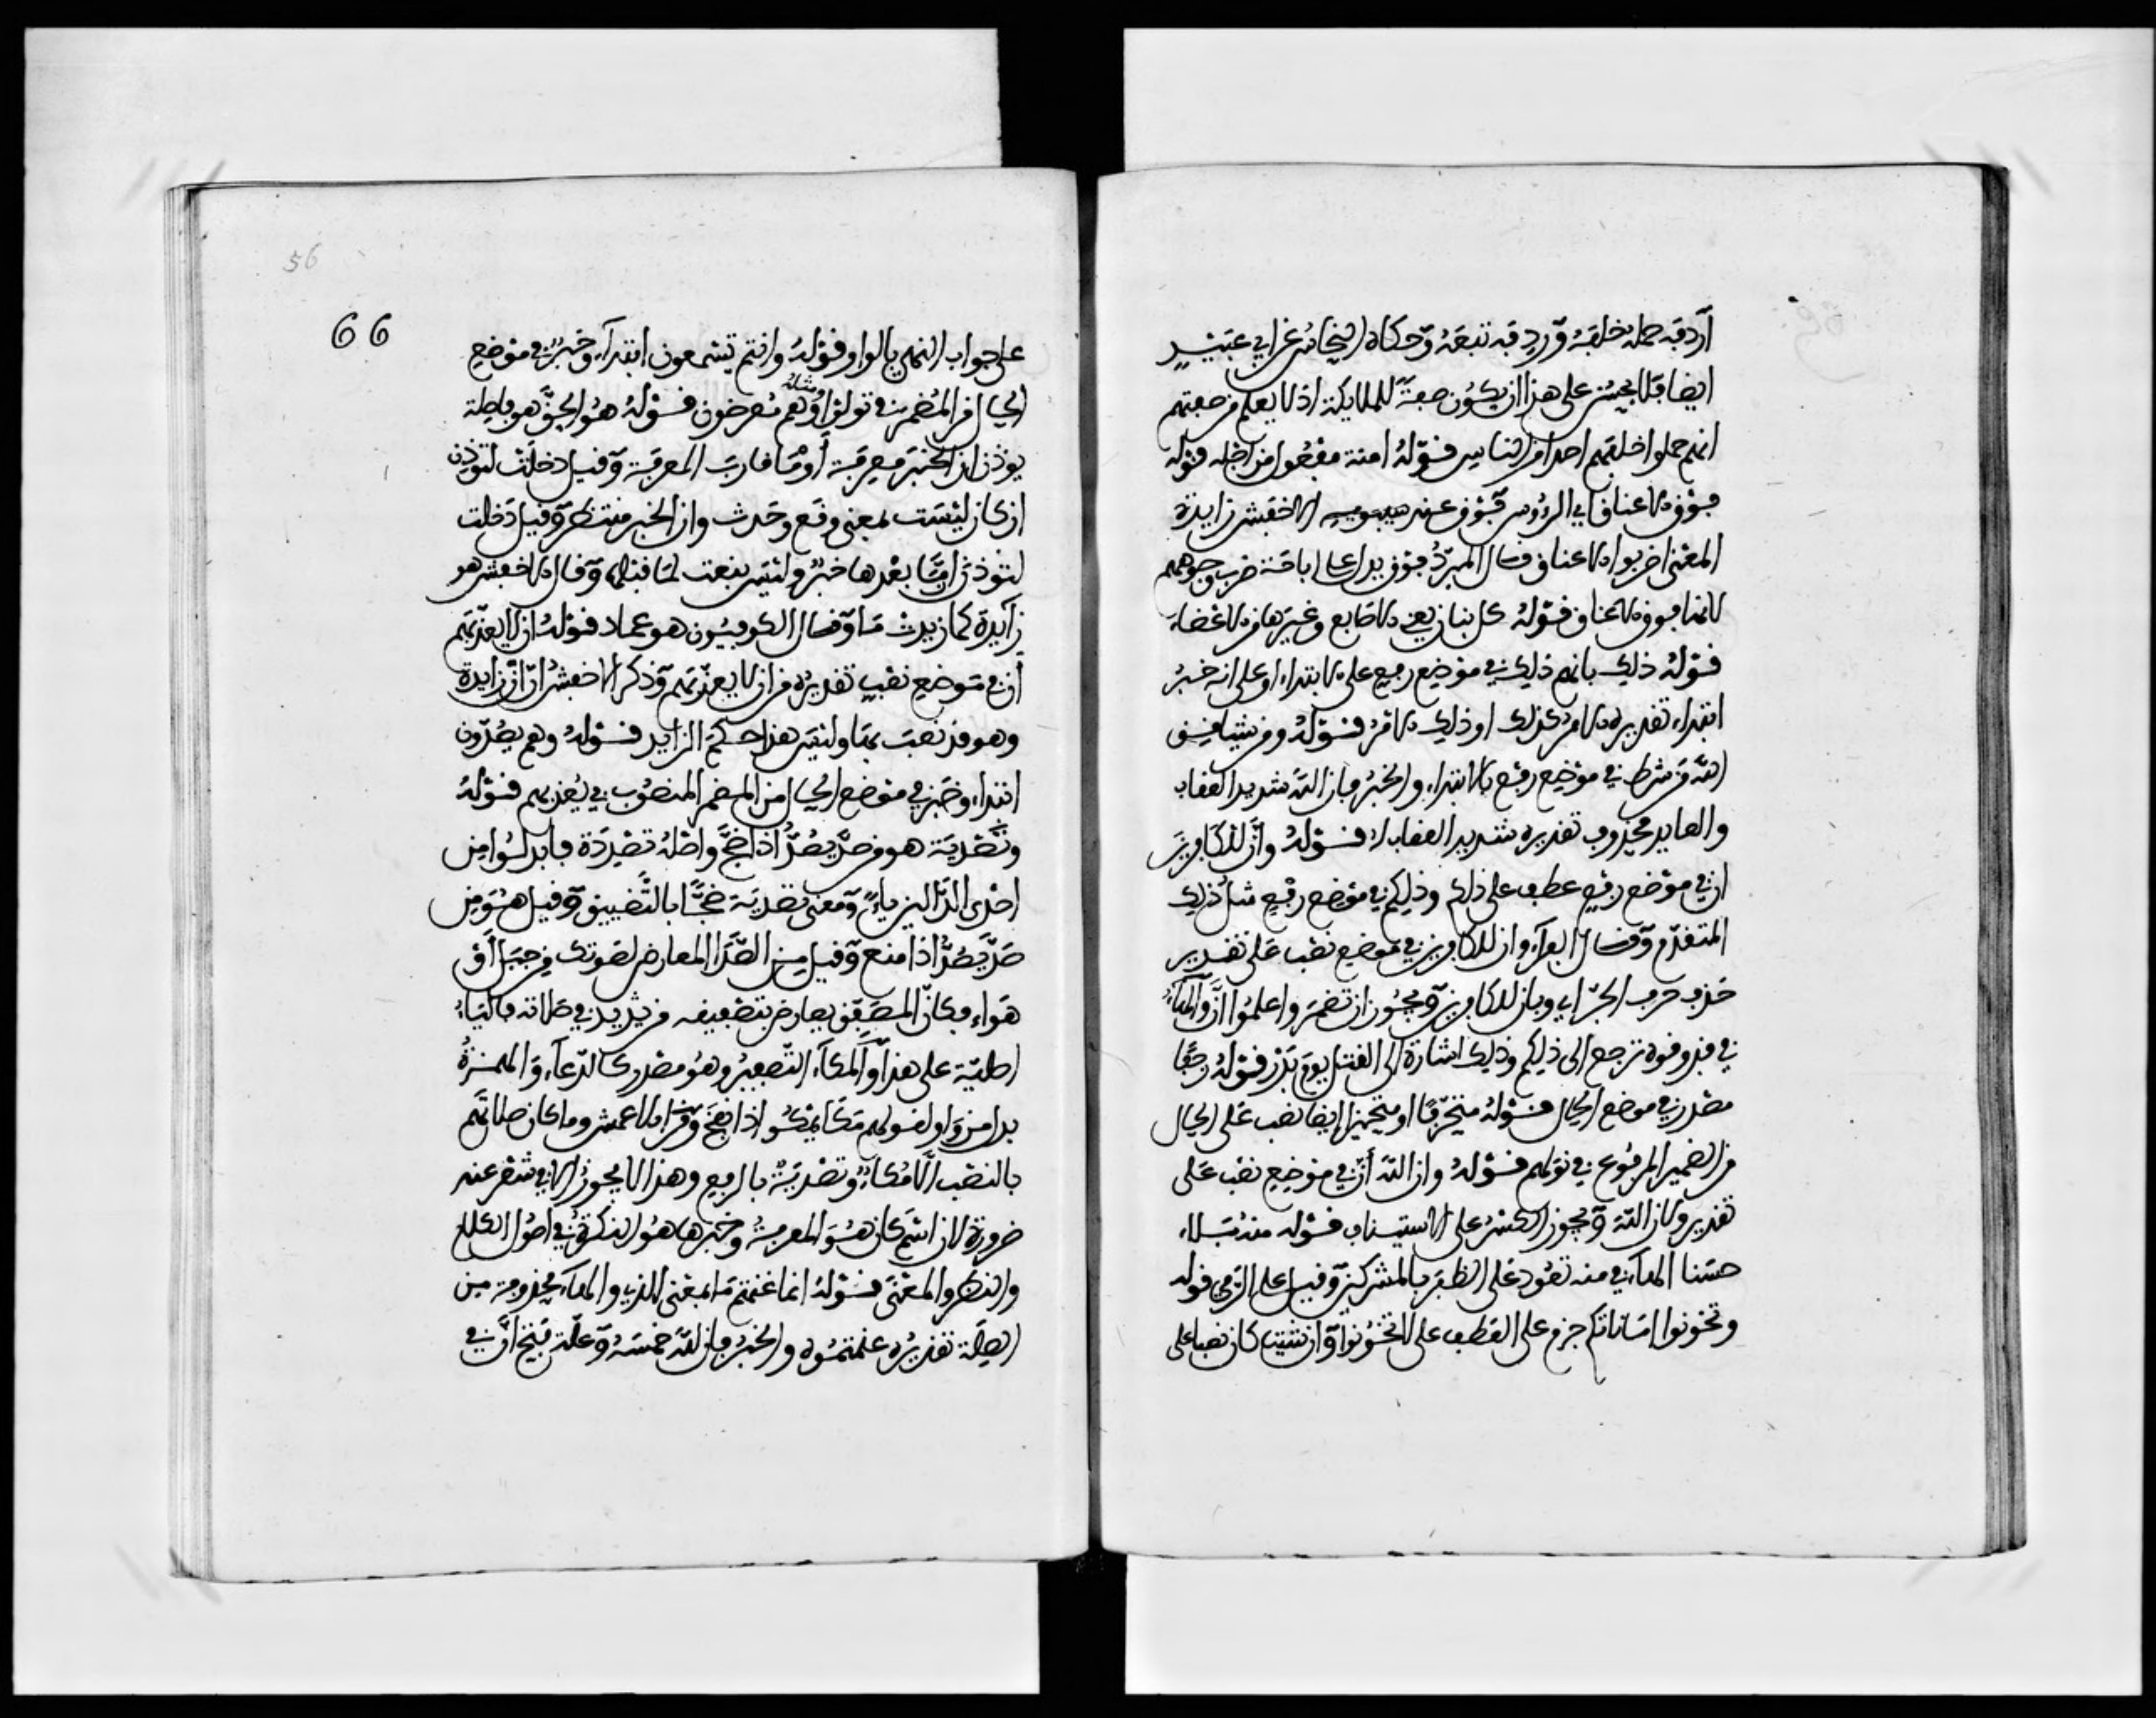 أردفه حمله خلفه وردفه تبعه وحكاه النحاس عن ابي عبيد
ايضا فلا يحسن على هذا ان يكون صفة للملايكة اذ لا يعلم من صفتهم
انهم حملوا خلفهم احدا من الناس قوله امنة مفعول من اجله قوله
فوق الاعناق اي الرؤوس فوق عند الاخفش زايدة
المعنى اضربوا الاعناق وقال المبرد فوق يدل على اباحة ضرب وجوههم
لانها فوق الاعناق قوله كل بنان يعني الاصابع وغيرها من الاعضاء
قوله ذلك بانهم ذلك في موضع رفع على الابتداء او على انه خبر
ابتداء تقديره الامر ذلك او ذلك الامر قوله ومن يشاقق
الله من شرط في موضع رفع بالابتداء والخبر فان الله شديد العقاب
والعايد محذوف تقديره شديد العقاب له قوله وان للكافرين
ان في موضع رفع عطف على ذلكم وذلكم في موضع رفع مثل ذلك
المتقدم وقال الفراء وان للكافرين في موضع نصب على تقدير
حذف حرف الجر اي وبان للكافرين ويجوز ان تضمر واعلموا ان والهاء
في فذوقوه ترجع الى ذلكم وذلك اشارة الى القتل يوم بدر قوله زحفا
مصدر في موضع الحال قوله متحرفا او متحيزا ايضا نصب على الحال
من الضمير المرفوع في نولهم قوله وان الله ان في موضع نصب على
تقدير ولان الله ويجوز الكسر على الاستيناف قوله منه بلاء
حسنا الهاء في منه تعود على الظفر بالمشركين وقيل على الرمي قوله
وتخونوا اماناتكم جزم على العطف على لا تخونوا وان شيت كان نصبا على
56
66
على جواب النهي بالواو قوله وانتم تسمعون ابتداء وخبر في موضع
الحال من المضمر في تولوا ومثله وهم معرضون قوله هو الحق هو فاصلة
يوذن ان الخبر معرفة أو ما قارب المعرفة وقيل دخلت لتوذن
ان كان ليست بمعنى وقع وحدث وان الخبر منتظر وقيل دخلت
لتوذن ان ما بعدها خبر وليس بنعت لما قبلها وقال الاخفش هو
زايدة كما زيدت ما وقال الكوفيون هو عماد قوله ان لا يعذبهم
أن في موضع نصب تقديره من ان لا يعذبهم وذكر الاخفش ان ان زايدة
وهو قد نصب بها وليس هذا حكم الزايد قوله وهم يصدون
ابتداء وخبر في موضع الحال من المضمر المنصوب في يعذبهم قوله
وتصدية هو من صد يصد اذا ضج واصله تصددة فابدلوا من
احدى الدالين ياء ومعنى تصدية ضجا بالتصفيق وقيل هو من
صد يصد اذا منع وقيل من الصدا المعارض لصوتك من جبل أو
هواء فكان المصفق يعارض بتصفيفه من يريد في صلاته فالياء
اصلية على هذا والمكاء التصفير وهو مصدر كالدعاء والهمزة
بدل من واو لقولهم مكا يمكو اذا نفخ وقرا الاعمش وما كان صلاتهم
بالنصب الا مكاء وتصدية بالرفع وهذا لا يجوز الا في شعر عند
ضرورة لان اسم كان هو المعرفة وخبرها هو النكرة في اصول الكلام
والنظر والمعنى قوله انما غنمتم ما بمعنى الذي والهاء محذوفة من
الصلة تقديره غنمتموه والخبر فان لله خمسه وعلة فتح ان في